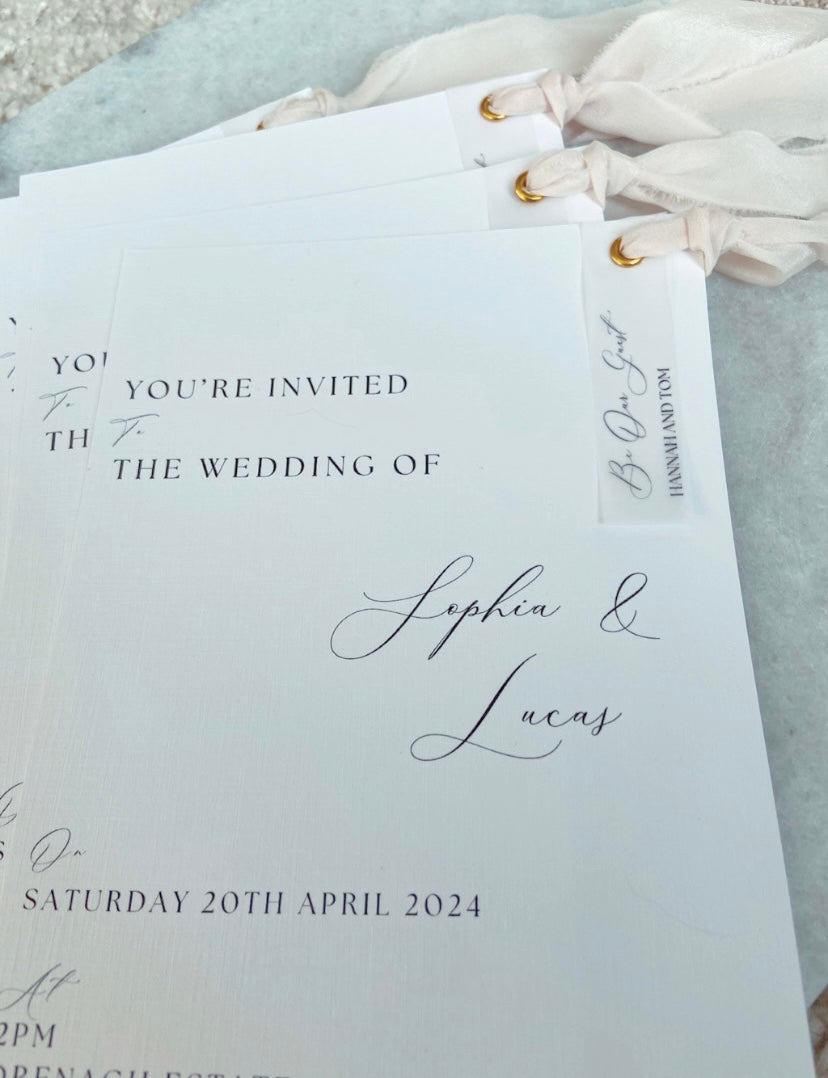 YOU'RE INVITED
To
THE WEDDING OF
Sophia &
Lucas
On
SATURDAY 20TH APRIL 2024
At
2PM
Be Our Guest
HANNAH AND TOM
YOU
To
TH